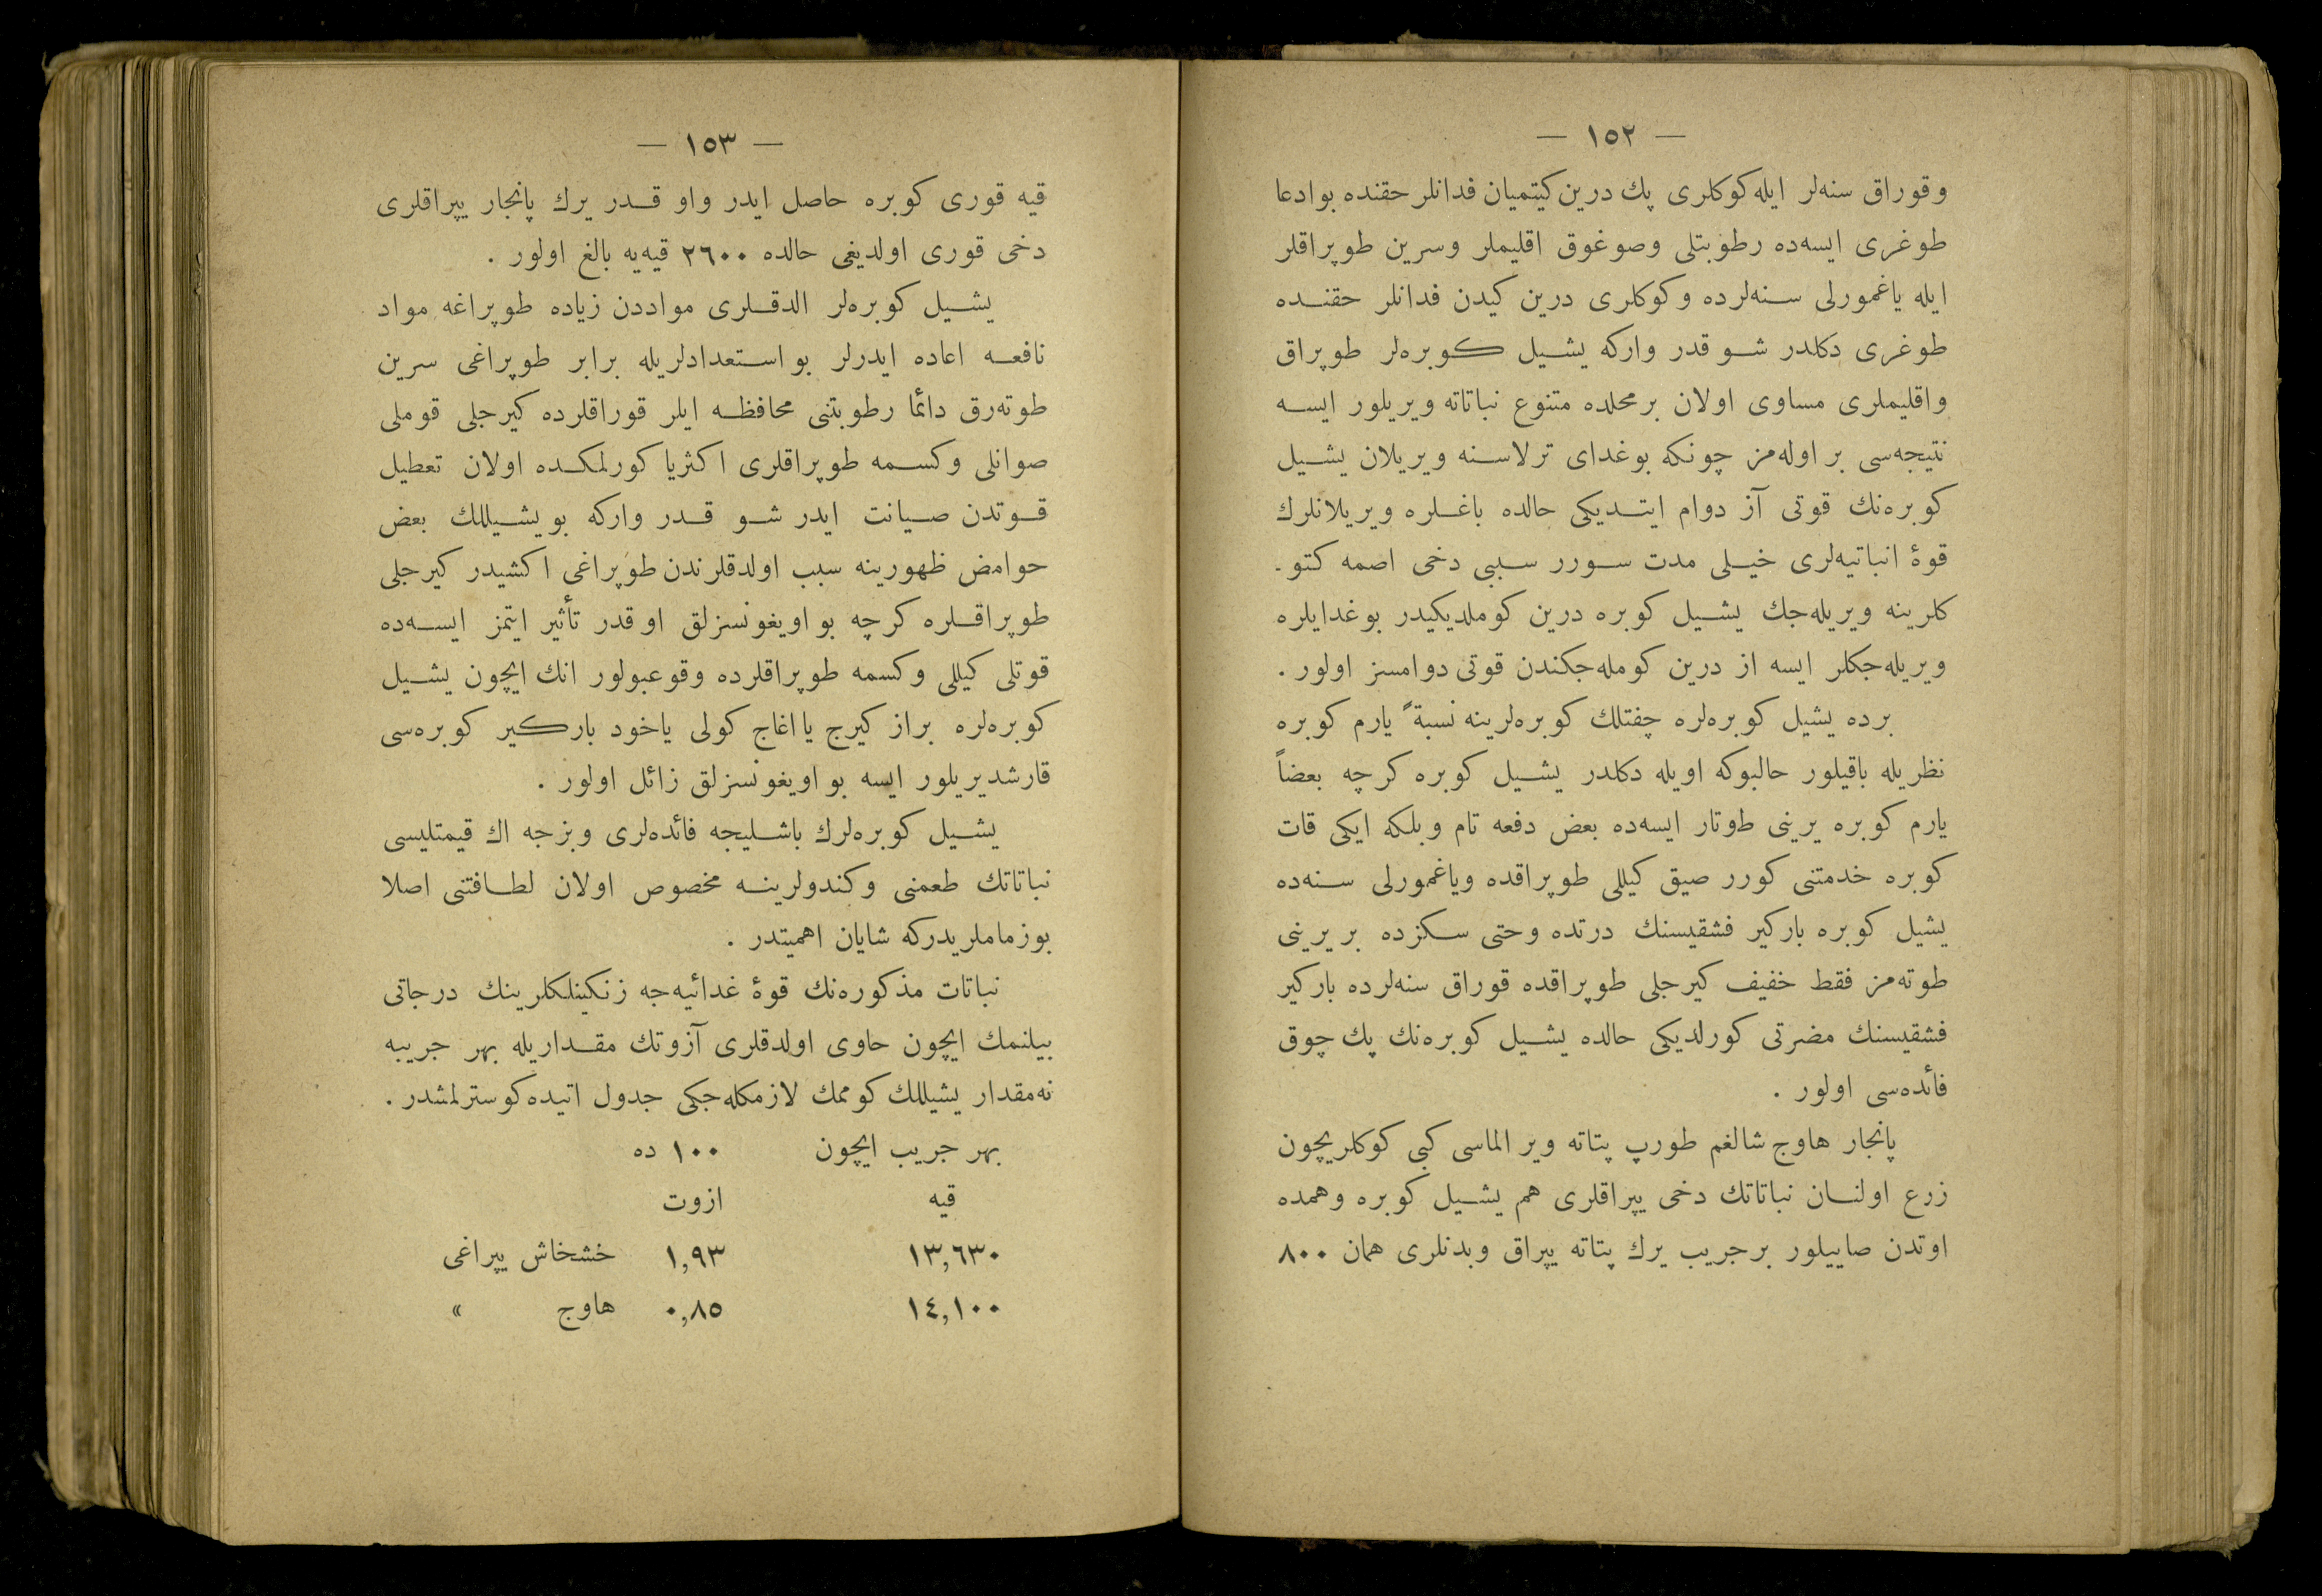 — ١٥٢ —
وقوراق سنه‌لر ايله كوكلرى پك درين كيتميان فدانلر حقنده بوادعا
طوغرى ايسه‌ده رطوبتلى وصوغوق اقليملر وسرين طوپراقلر
ايله ياغمورلى سنه‌لرده وكوكلرى درين كيدن فدانلر حقنده
طوغرى دكلدر شو قدر واركه يشيل كوبره‌لر طوپراق
واقليملرى مساوى اولان برمحلده متنوع نباتاته ويريلور ايسه
نتيجه‌سى بر اوله‌مز چونكه بوغداى ترلاسنه ويريلان يشيل
كوبره‌نك قوتى آز دوام ايتديكى حالده باغلره ويريلانلرك
قوهٔ انباتيه‌لرى خيلى مدت سورر سببى دخى اصمه كتو-
كلرينه ويريله‌جك يشيل كوبره درين كوملديكيدر بوغدايلره
ويريله‌جكلر ايسه از درين كومله‌جكندن قوتى دوامسز اولور .
برده يشيل كوبره‌لره چفتلك كوبره‌لرينه نسبةً يارم كوبره
نظريله باقيلور حالبوكه اويله دكلدر يشيل كوبره كرچه بعضاً
يارم كوبره يرينى طوتار ايسه‌ده بعض دفعه تام وبلكه ايكى قات
كوبره خدمتنى كورر صيق كيللى طوپراقده وياغمورلى سنه‌ده
يشيل كوبره باركير فشقيسنك درتده وحتى سكزده بر يرينى
طوته‌مز فقط خفيف كيرجلى طوپراقده قوراق سنه‌لرده باركير
فشقيسنك مضرتى كورلديكى حالده يشيل كوبره‌نك پك چوق
فائده‌سى اولور .
پانجار هاوج شالغم طورپ پتاته وير الماسى كبى كوكلريچون
زرع اولنان نباتاتك دخى يپراقلرى هم يشيل كوبره وهمده
اوتدن صاييلور برجريب يرك پتاته يپراق وبدنلرى همان ٨٠٠
— ١٥٣ —
قيه قورى كوبره حاصل ايدر واو قدر يرك پانجار يپراقلرى
دخى قورى اولديغى حالده ٢٦٠٠ قيه‌يه بالغ اولور .
يشيل كوبره‌لر الدقلرى مواددن زياده طوپراغه مواد
نافعه اعاده ايدرلر بو استعدادلريله برابر طوپراغى سرين
طوته‌رق دائما رطوبتنى محافظه ايلر قوراقلرده كيرجلى قوملى
صوانلى وكسمه طوپراقلرى اكثريا كورلمكده اولان تعطيل
قوتدن صيانت ايدر شو قدر واركه بويشيللك بعض
حوامض ظهورينه سبب اولدقلرندن طوپراغى اكشيدر كيرجلى
طوپراقلره كرچه بو اويغونسزلق اوقدر تأثير ايتمز ايسه‌ده
قوتلى كيللى وكسمه طوپراقلرده وقوعبولور انك ايچون يشيل
كوبره‌لره براز كيرج يا اغاج كولى ياخود باركير كوبره‌سى
قارشديريلور ايسه بو اويغونسزلق زائل اولور .
يشيل كوبره‌لرك باشليجه فائده‌لرى وبزجه اك قيمتليسى
نباتاتك طعمنى وكندولرينه مخصوص اولان لطافتنى اصلا
بوزماملريدركه شايان اهميتدر .
نباتات مذكوره‌نك قوهٔ غدائيه‌جه زنكينلكلرينك درجاتى
بيلنمك ايچون حاوى اولدقلرى آزوتك مقداريله بهر جريبه
نه‌مقدار يشيللك كوممك لازمكله‌جكى جدول اتيده كوسترلمشدر .
بهر جريب ايچون ١٠٠ ده
قيه ازوت
١٣,٦٣٠ ١,٩٣ خشخاش يپراغى
١٤,١٠٠ ٠,٨٥ هاوج »